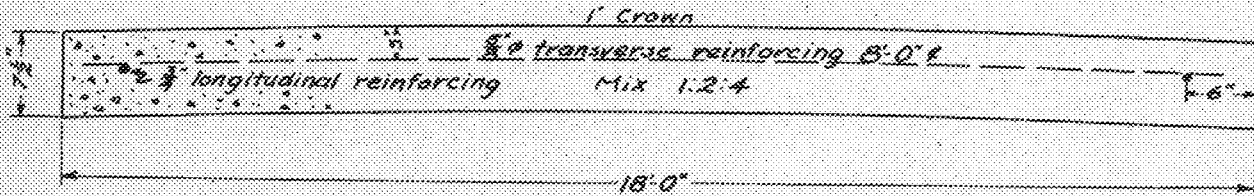 1" Crown
3"
⅝"⌀ transverse reinforcing 8'-0" ¢
7½"
2 ¾" longitudinal reinforcing Mix 1:2:4
6"
18'-0"